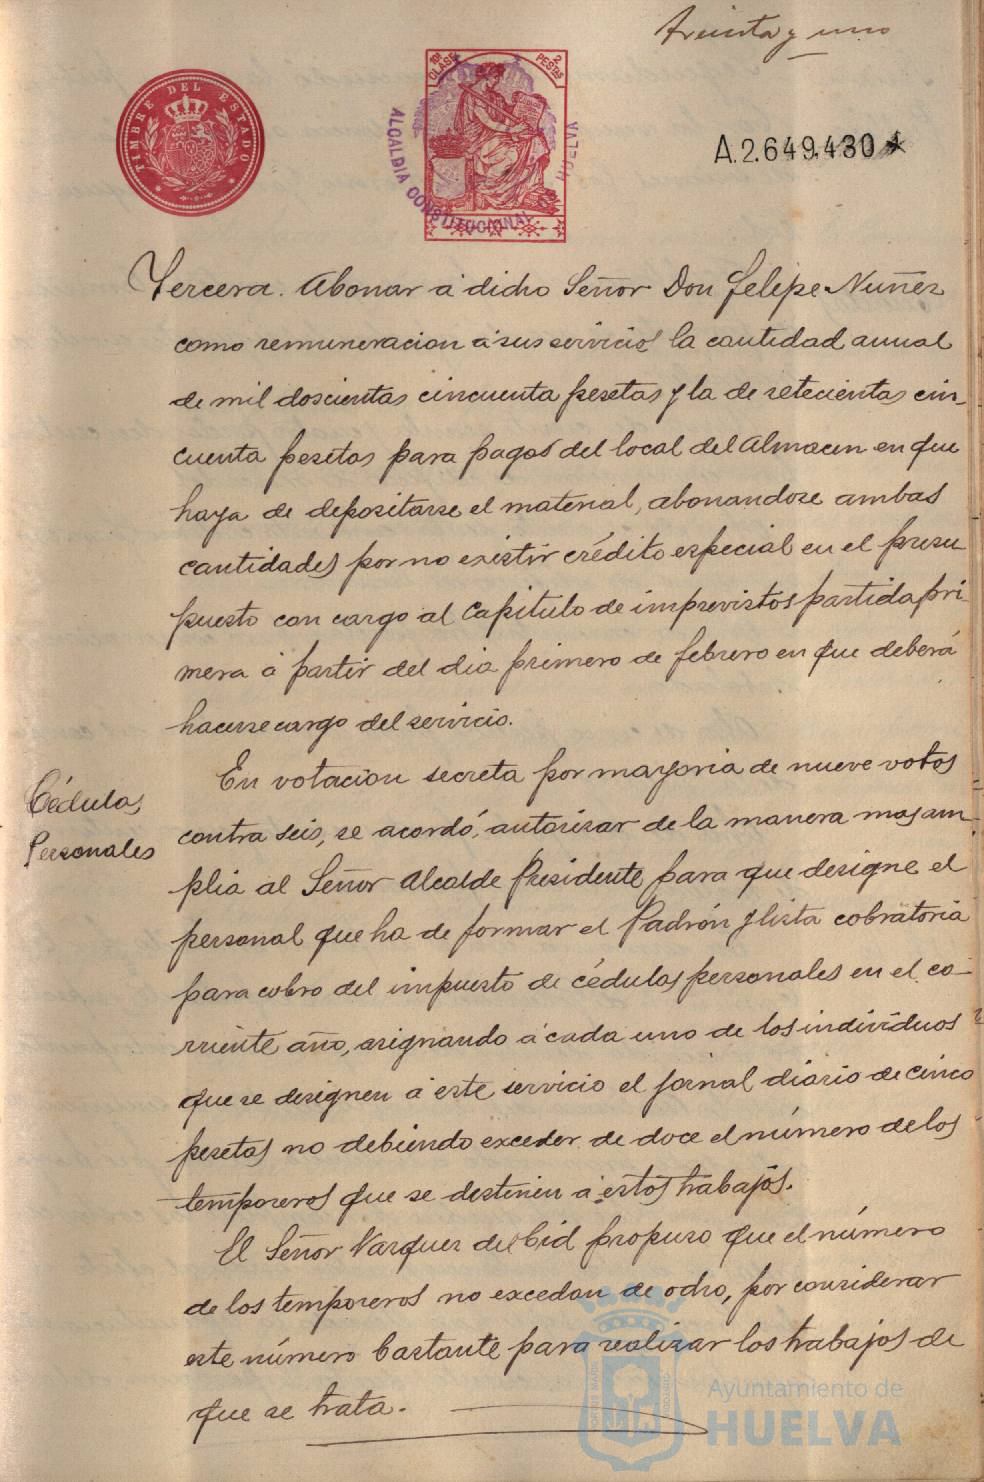 treinta y uno
TIMBRE DEL ESTADO
10ª CLASE
2 PESTAS
ALCALDIA CONSTITUCIONAL DE HUELVA
A.2.649.430
Tercera. Abonar á dicho Señor Don Felipe Nuñez
como remuneracion á sus servicios la cantidad anual
de mil doscientas cincuenta pesetas y la de setecientas cin-
cuenta pesetas para pagos del local del Almacen en que
haya de depositarse el material, abonandose ambas
cantidades por no existir crédito especial en el presu
puesto con cargo al Capitulo de imprevistos partida pri-
mera á partir del dia primero de febrero en que deberá
hacerse cargo del servicio.
Cédulas
Personales
En votacion secreta por mayoria de nueve votos
contra seis, se acordó, autorizar de la manera mas am-
plia al Señor Alcalde Presidente para que designe el
personal que ha de formar el Padrón y lista cobratoria
para cobro del impuesto de cédulas personales en el co-
rriente año, asignando á cada uno de los individuos
que se designen á este servicio el jornal diario de cinco
pesetas no debiendo exceder de doce el número de los
temporeros que se destinen á estos trabajos.
El Señor Vazquez del Cid propuso que el número
de los temporeros no excedan de ocho, por considerar
este número bastante para realizar los trabajos de
que se trata.
Ayuntamiento de
HUELVA